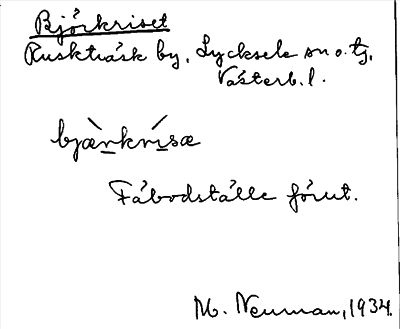 Björkriset
Ruskträsk by, Lycksele sn o. tg,
Västerb. l.
bjæ̀rkrísæ
Fäbodställe förut.
M. Neuman, 1934.